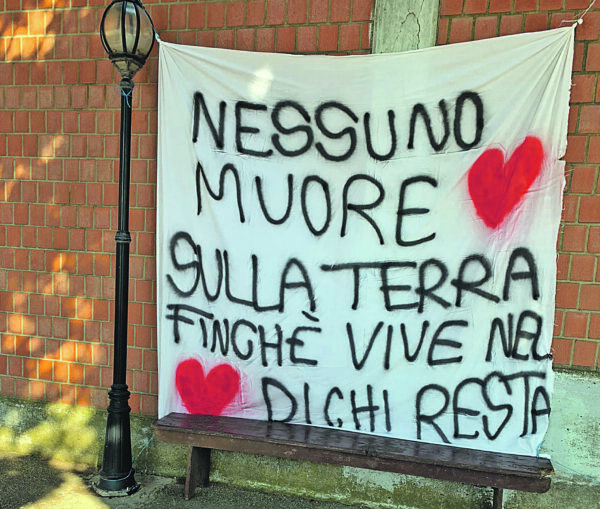 NESSUNO
MUORE
SULLA TERRA
FINCHÈ VIVE NEL
DI CHI RESTA